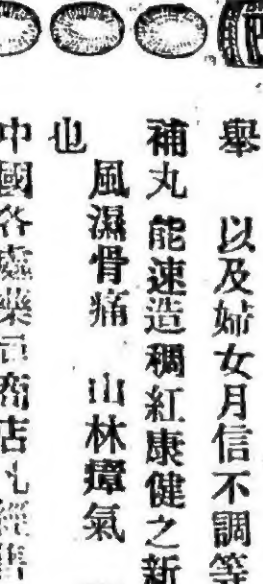 舉　以及婦女月信不調等
補丸　能速造稠紅康健之新
風濕骨痛　山林瘴氣
也
中國各處藥局商店凡經售